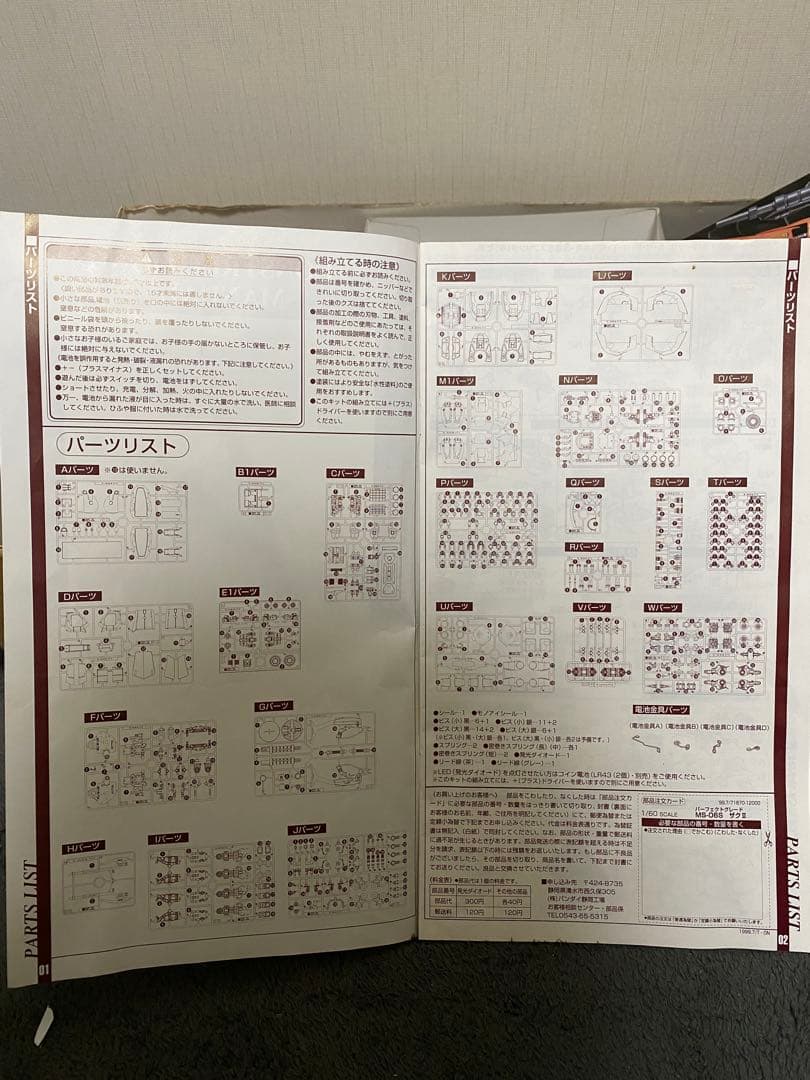 ■パーツリスト
必ずお読みください
(鋭い部品がありますので、15才未満には適しません。)
窒息などの危険があります。
●ビニール袋を頭から被ったり、顔を覆ったりしないでください。
窒息する恐れがあります。
●小さなお子様のいるご家庭では、お子様の手の届かないところに保管し、お子
様には絶対に与えないでください。
(電池を誤作用すると発熱・破裂・液漏れの恐れがあります。下記に注意してください。)
●+−(プラスマイナス)を正しくセットしてください。
●遊んだ後は必ずスイッチを切り、電池をはずしてください。
●ショートさせたり、充電、分解、加熱、火の中に入れたりしないでください。
●万一、電池から漏れた液が目に入った時は、すぐに大量の水で洗い、医師に相談
してください。ひふや服に付いた時は水で洗ってください。
《組み立てる時の注意》
●組み立てる前に必ずお読みください。
●部品は番号を確かめ、ニッパーなどで
きれいに切り取ってください。切り取
った後のクズは捨ててください。
●部品の加工の際の刃物、工具、塗料、
接着剤などのご使用にあたっては、そ
れぞれの取扱説明書をよく読んで、正
しく使用してください。
●部品の中には、やむをえず、とがった
所があるものもありますが、気をつけ
て組み立ててください。
●塗装にはより安全な「水性塗料」のご使
用をおすすめします。
●このキットの組み立てには+(プラス)
ドライバーを使いますので別にご用意
ください。
パーツリスト
Aパーツ
は使いません。
B1パーツ
Cパーツ
Dパーツ
E1パーツ
Fパーツ
Gパーツ
Hパーツ
Iパーツ
Jパーツ
PARTS LIST
01
Kパーツ
Lパーツ
M1パーツ
Nパーツ
Oパーツ
Pパーツ
Qパーツ
Sパーツ
Tパーツ
Rパーツ
Uパーツ
Vパーツ
Wパーツ
●シール…1 ●モノアイシール…1
●ビス(小)黒…6+1 ●ビス(小)銀…11+2
●ビス(大)黒…14+2 ●ビス(大)銀…6+1
●スプリング…2 ●密巻きスプリング(長)(中)…各1
●密巻きスプリング(短)…2 ●発光ダイオード…1
●リード線(茶)…1 ●リード線(グレー)…1
電池金具パーツ
(電池金具A) (電池金具B) (電池金具C) (電池金具D)
※LED(発光ダイオード)を点灯させたい方はコイン電池(LR43(2個)・別売)をご使用ください。
※このキットの組み立てには、+(プラス)ドライバーを使いますので別にご用意ください。
《お買い上げのお客様へ》 部品をこわしたり、なくした時は「部品注文カ
ード」に必要な部品の番号・数量をはっきり書いて切り取り、封書(裏面に
お客様のお名前、年齢、ご住所を明記してください)にて、郵便為替または
定額小為替で下記までお申し込みください。代金は料金表通りです。為替証
書は無記入(白紙)で同封してください。なお、部品の形状・重量で郵送料
に過不足が生じることがあります。部品発送の際に游記額を超える時は不足
分を請求、游記額以下の時には残額をお返しいたします。もし部品に不良品
がございましたら、その部品を切り取り、商品名を書いて、下記まで封書に
てお送りください。良品と交換させていただきます。
《料金表》 ●部品代は1個の料金です。
部品番号 発光ダイオード その他の部品
部品代 300円 各40円
郵送料 120円 120円
■お申し込み先 〒424-8735
静岡県清水市西久保305
(株)バンダイ静岡工場
お客様相談センター・部品係
TEL0543-65-5315
部品注文カード
1/60 SCALE
パーフェクトグレード
MS-06S ザクⅡ
必要な部品の番号・数量を書く
●注文された理由(○でかこむ)(こわした・なくした)
■パーツリスト
PARTS LIST
02